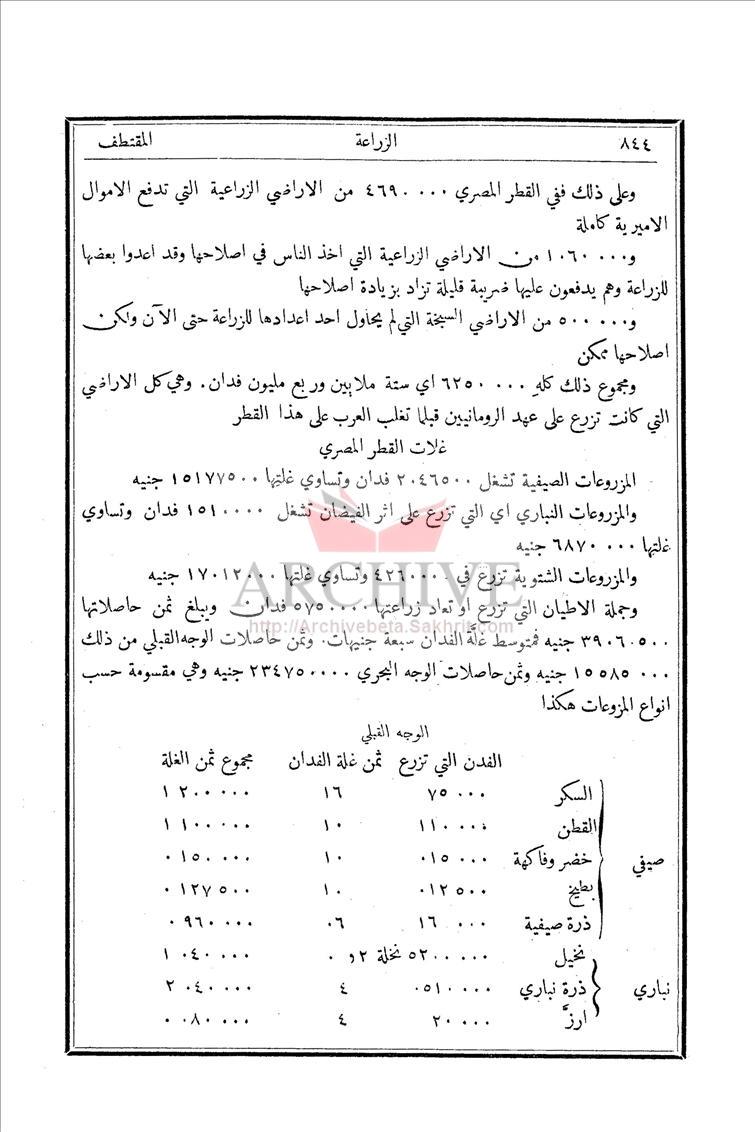 ٨٤٤ الزراعة المقتطف
وعلى ذلك ففي القطر المصري ٠٠٠ ٤٦٩٠ من الاراضي الزراعية التي تدفع الاموال
الاميرية كاملة
و٠٠٠ ١٠٦٠ من الاراضي الزراعية التي اخذ الناس في اصلاحها وقد اعدوا بعضها
للزراعة وهم يدفعون عليها ضريبة قليلة تزاد بزيادة اصلاحها
و٠٠٠ ٥٠٠ من الاراضي السبخة التي لم يحاول احد اعدادها للزراعة حتى الآن ولكن
اصلاحها ممكن
ومجموع ذلك كلهِ ٠٠٠ ٦٢٥٠ اي ستة ملايين وربع مليون فدان. وهي كل الاراضي
التي كانت تزرع على عهد الرومانيين قبلما تغلب العرب على هذا القطر
غلات القطر المصري
المزروعات الصيفية تشغل ٢٠٤٦٥٠٠ فدان وتساوي غلتها ١٥١٧٧٥٠٠ جنيه
والمزروعات النباري اي التي تزرع على اثر الفيضان تشغل ١٥١٠٠٠٠ فدان وتساوي
غلتها ٠٠٠ ٦٨٧٠ جنيه
والمزروعات الشتوية تزرع في ٤٢٦٠٠٠٠ وتساوي غلتها ١٧٠١٢٠٠٠ جنيه
وجملة الاطيان التي تزرع او تعاد زراعتها ٥٧٥٠٠٠٠ فدان ويبلغ ثمن حاصلاتها
٣٩٠٦٠٥٠٠ جنيه فمتوسط غلَّة الفدان سبعة جنيهات. وثمن حاصلات الوجه القبلي من ذلك
٠٠٠ ١٥٥٨٥ جنيه وثمن حاصلات الوجه البحري ٢٣٤٧٥٠٠٠٠ جنيه وهي مقسومة حسب
انواع المزوعات هكذا
الوجه القبلي
الفدن التي تزرع ثمن غلة الفدان مجموع ثمن الغلة
السكر ٧٥٠٠٠ ١٦ ١٢٠٠٠٠٠
القطن ١١٠٠٠٠ ١٠ ١١٠٠٠٠٠
صيفي خضر وفاكهة ٠١٥٠٠٠ ١٠ ٠١٥٠٠٠٠
بطيخ ٠١٢٥٠٠ ١٠ ٠١٢٧٥٠٠
ذرة صيفية ١٦٠٠٠ ٠٦ ٠٩٦٠٠٠٠
نخيل ٥٢٠٠٠٠٠ نخلة ٠و٢ ١٠٤٠٠٠٠
نباري ذرة نباري ٠٥١٠٠٠٠ ٤ ٢٠٤٠٠٠٠
ارزّ ٢٠٠٠٠ ٤ ٠٠٨٠٠٠٠
ARCHIVE
http://Archivebeta.Sakhrit.com